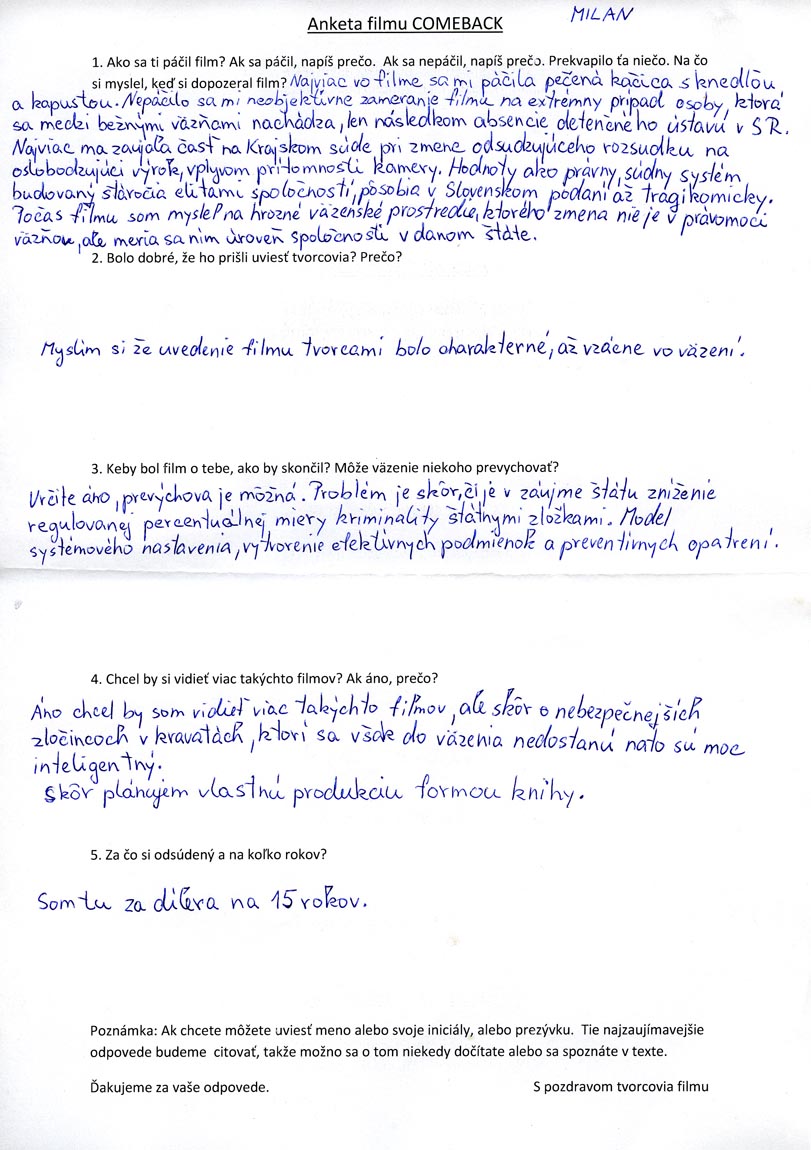 Anketa filmu COMEBACK
MILAN
1. Ako sa ti páčil film? Ak sa páčil, napíš prečo. Ak sa nepáčil, napíš prečo. Prekvapilo ťa niečo. Na čo
si myslel, keď si dopozeral film? Najviac vo filme sa mi páčila pečená kačica s knedľou
a kapustou. Nepáčilo sa mi neobjektívne zameranie filmu na extrémny prípad osoby, ktorá
sa medzi bežnými väzňami nachádza, len následkom absencie detenčného ústavu v SR.
Najviac ma zaujala časť na Krajskom súde pri zmene odsudzujúceho rozsudku na
oslobodzujúci výrok, vplyvom prítomnosti kamery. Hodnoty ako právny, súdny systém
budovaný stáročia elitámi spoločnosti, pôsobia v Slovenskom podaní až tragikomicky.
Počas filmu som myslel na hrozné väzenské prostredie, ktorého zmena nie je v právomoci
väzňov, ale meria sa ním úroveň spoločnosti v danom štáte.
2. Bolo dobré, že ho prišli uviesť tvorcovia? Prečo?
Myslím si že uvedenie filmu tvorcami bolo charakterné, až vzácne vo väzení.
3. Keby bol film o tebe, ako by skončil? Môže väzenie niekoho prevychovať?
Určite áno, prevýchova je možná. Problém je skôr, či je v záujme štátu zníženie
regulovanej percentuálnej miery kriminality štátnymi zložkami. Model
systémového nastavenia, vytvorenie efektívnych podmienok a preventívnych opatrení.
4. Chcel by si vidieť viac takýchto filmov? Ak áno, prečo?
Áno chcel by som vidieť viac takýchto filmov, ale skôr o nebezpečnejších
zločincoch v kravatách, ktorí sa však do väzenia nedostanú nato sú moc
inteligentný.
Skôr plánujem vlastnú produkciu formou knihy.
5. Za čo si odsúdený a na koľko rokov?
Som tu za dílera na 15 rokov.
Poznámka: Ak chcete môžete uviesť meno alebo svoje iniciály, alebo prezývku. Tie najzaujímavejšie
odpovede budeme citovať, takže možno sa o tom niekedy dočítate alebo sa spoznáte v texte.
Ďakujeme za vaše odpovede. S pozdravom tvorcovia filmu